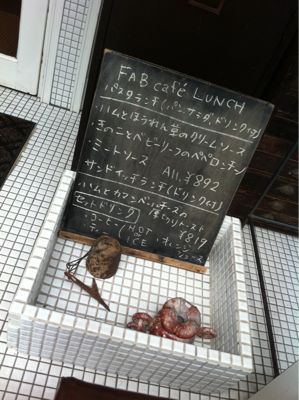 FAB café LUNCH
パスタランチ(パン、サラダ、ドリンク付)
・ハムとほうれん草のクリームソース
・きのことベビーリーフのペペロンチーノ
・ミートソース All. ¥892
サンドイッチランチ(ドリンク付)
・ハムとカマンベールチーズの
厚切りトースト
¥819
セットドリンク
・コーヒー (HOT or ICE
・ティー
・オレンジジュース